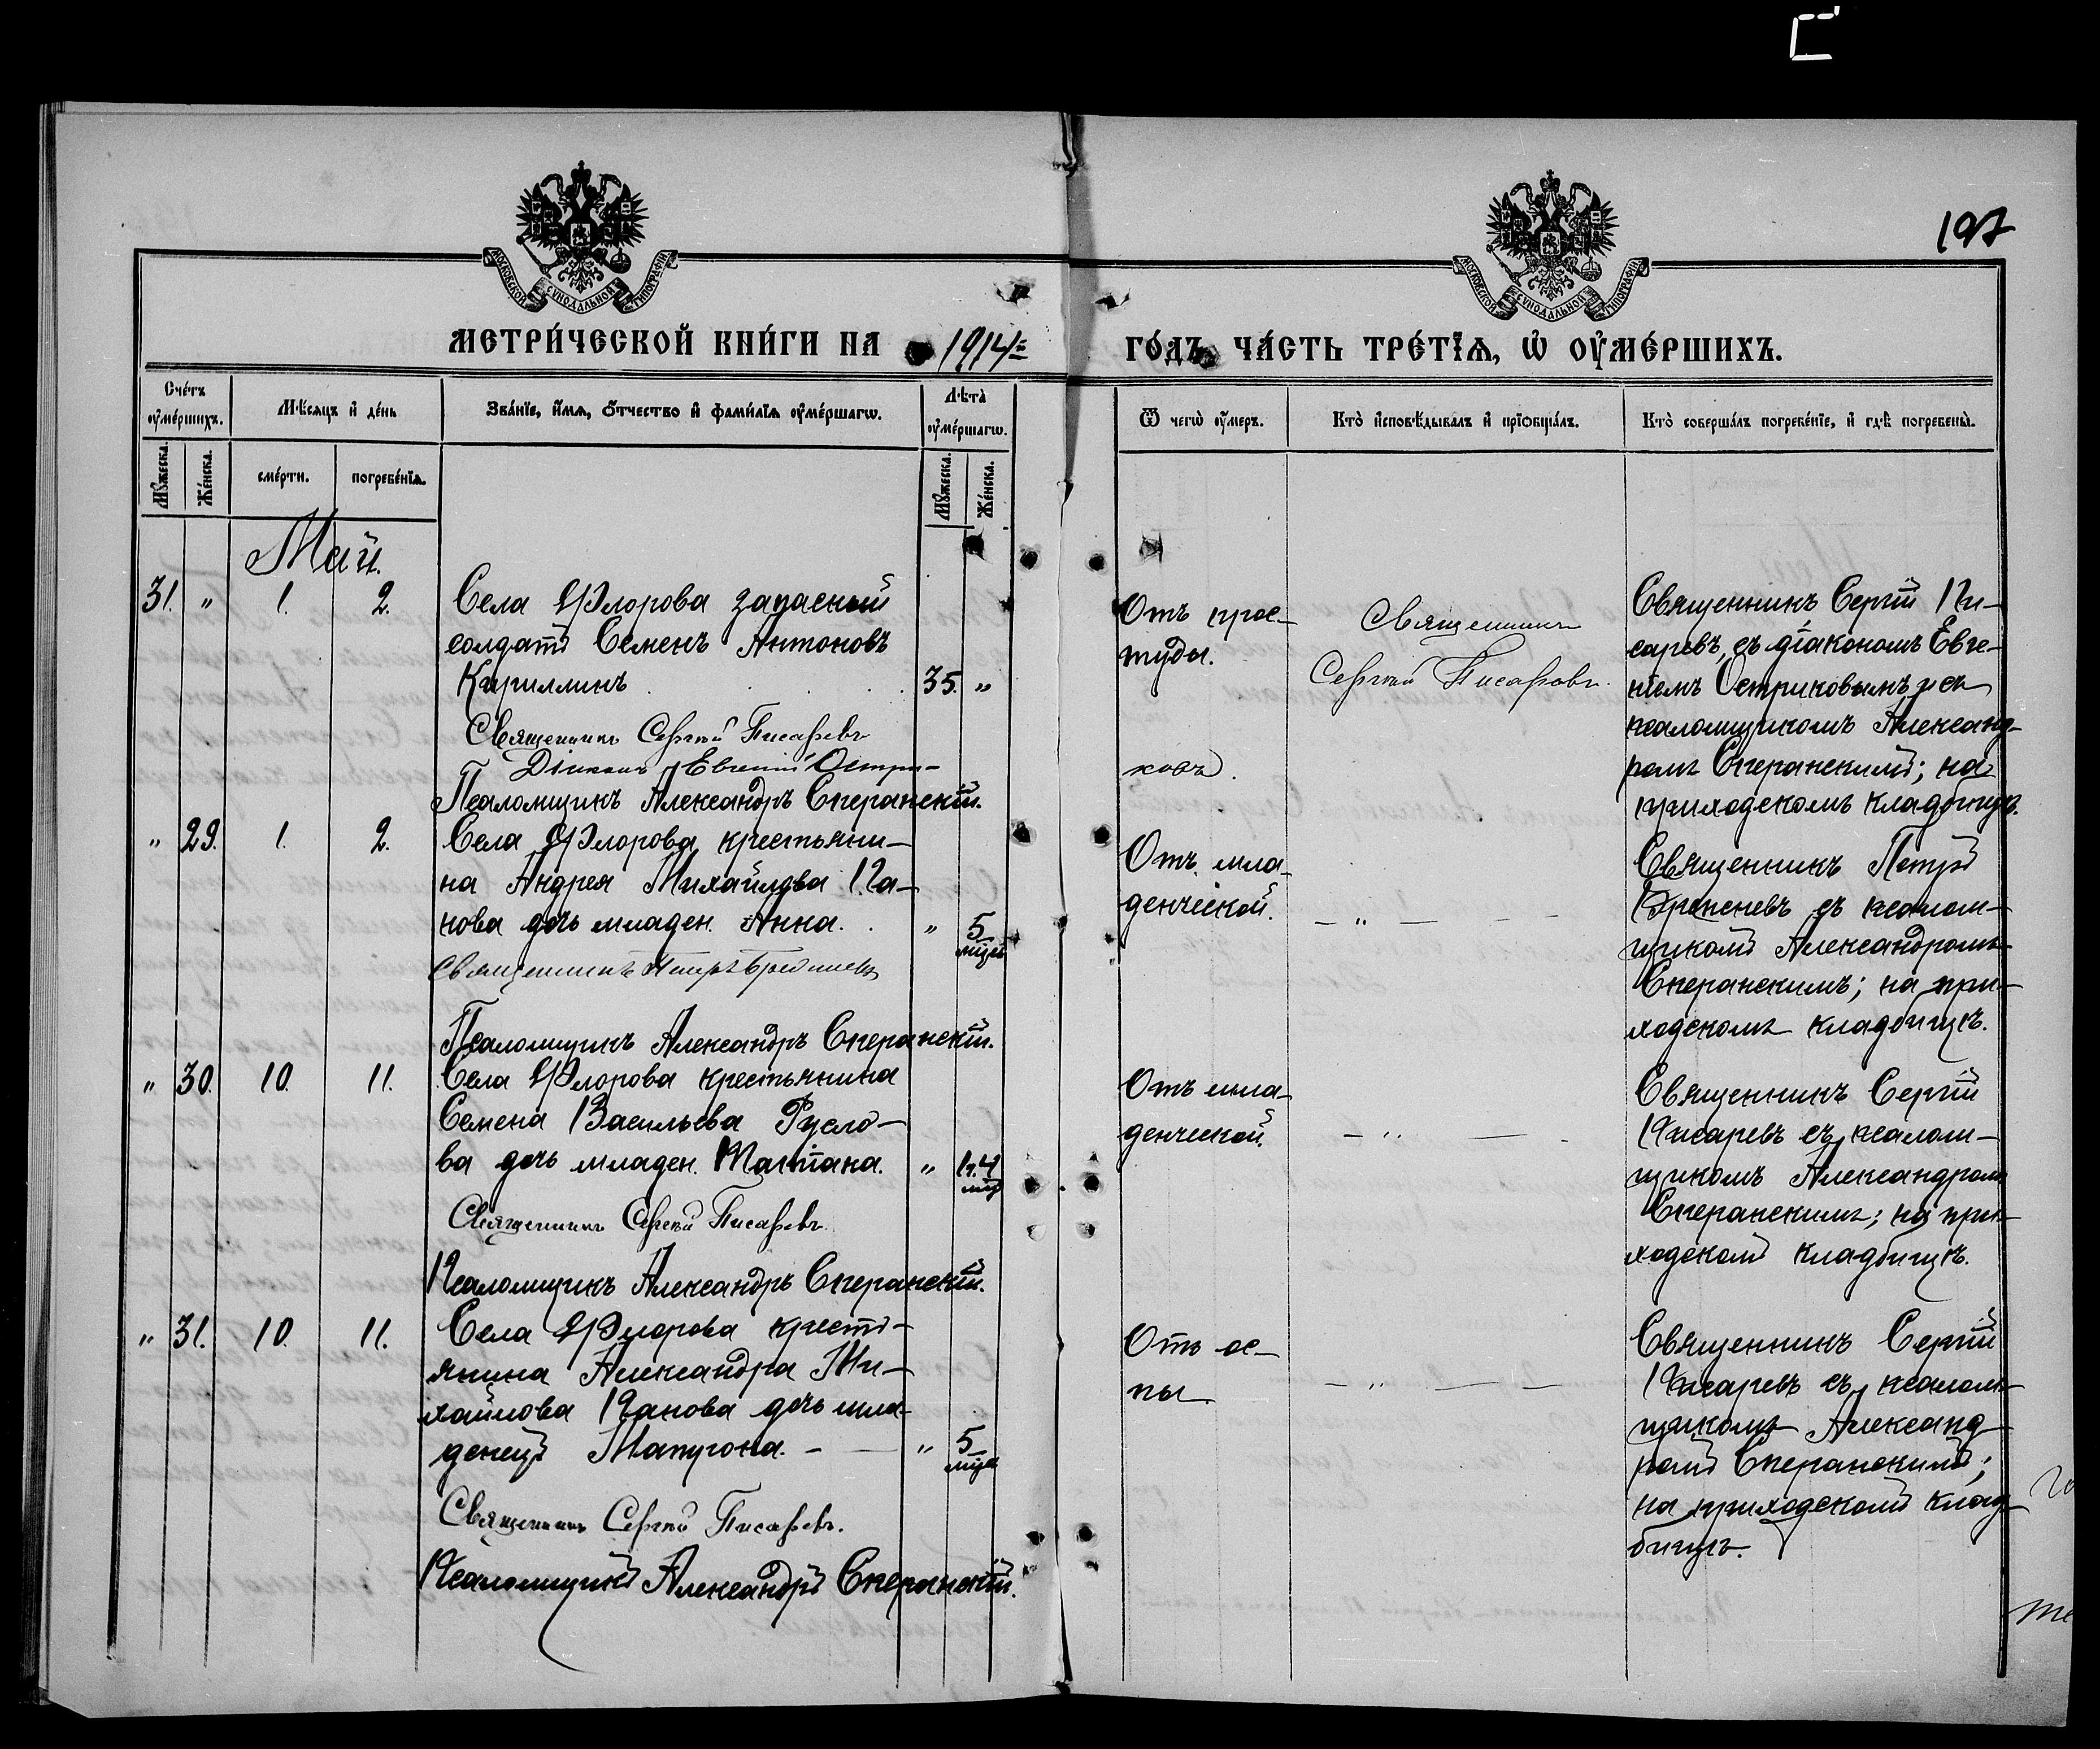 197
МОСКОВСКОЙ СУНОДАЛЬНОЙ ТИПОГРАФІИ
МОСКОВСКОЙ СУНОДАЛЬНОЙ ТИПОГРАФІИ
МЕТРИ́ЧЕСКОЙ КНИ́ГИ НА 1914 ГО́ДЪ, ЧА́СТЬ ТРЕ́ТІѦ, Ѡ ОУМЕ́РШИХЪ.
Сче́тъ оумершихъ.
Мѣсяцъ и де́нь
Зва́нїе, и́мя, о́тчество и фами́лїя оумершагѡ.
Лѣта̀ оумершагѡ.
Ѿ чегѡ̀ оумеръ.
Кто̀ исповѣдывалъ и прїобща́лъ.
Кто̀ соверша́лъ погребе́нїе, и гдѣ̀ погребены̀.
Му́жеска.
Же́нска.
сме́рти.
погребе́нїя.
Му́жеска.
Же́нска.
Май.
31. " 1. 2.
Села Флорова запасный
солдатъ Семенъ Антоновъ
Кириллинъ 35. "
Священникъ Сергѣй Писаревъ
Діаконъ Евгеній Остри-
ковъ.
Псаломщикъ Александръ Сперанскій.
Отъ прос-
туды.
Священникъ
Сергѣй Писаревъ.
Священникъ Сергій Пи-
саревъ, съ діакономъ Евге-
ніемъ Остриковымъ и съ
псаломщикомъ Александ-
ромъ Сперанскимъ; на
приходскомъ кладбищѣ.
" 29. 1. 2.
Села Флорова, крестьяни-
на Андрея Михайлова Па-
нова дочь младен. Анна. " 5 мцъ
Священникъ Петръ Брепневъ
Псаломщикъ Александръ Сперанскій.
Отъ мла-
денческой.
— " —
Священникъ Петръ
съ псалом-
щикомъ Александромъ
Сперанскимъ; на при-
ходскомъ кладбищѣ.
" 30. 10. 11.
Села Флорова крестьянина
Семена Васильева Русло-
ва дочь младен. Татіана. " 1г. 4 мц
Священникъ Сергѣй Писаревъ.
Псаломщикъ Александръ Сперанскій.
Отъ мла-
денческой.
— " —
Священникъ Сергій
Писаревъ съ псалом-
щикомъ Александромъ
Сперанскимъ; на при-
ходскомъ кладбищѣ.
" 31. 10. 11.
Села Флорова кресть-
янина Александра Ми-
хайлова Панова дочь мла-
денецъ Матрона. — " 5 мца
Священникъ Сергѣй Писаревъ.
Псаломщикъ Александръ Сперанскій.
Отъ ос-
пы
— " —
Священникъ Сергій
Писаревъ съ псалом-
щикомъ Александ-
ромъ Сперанскимъ;
на приходскомъ клад-
бищѣ.